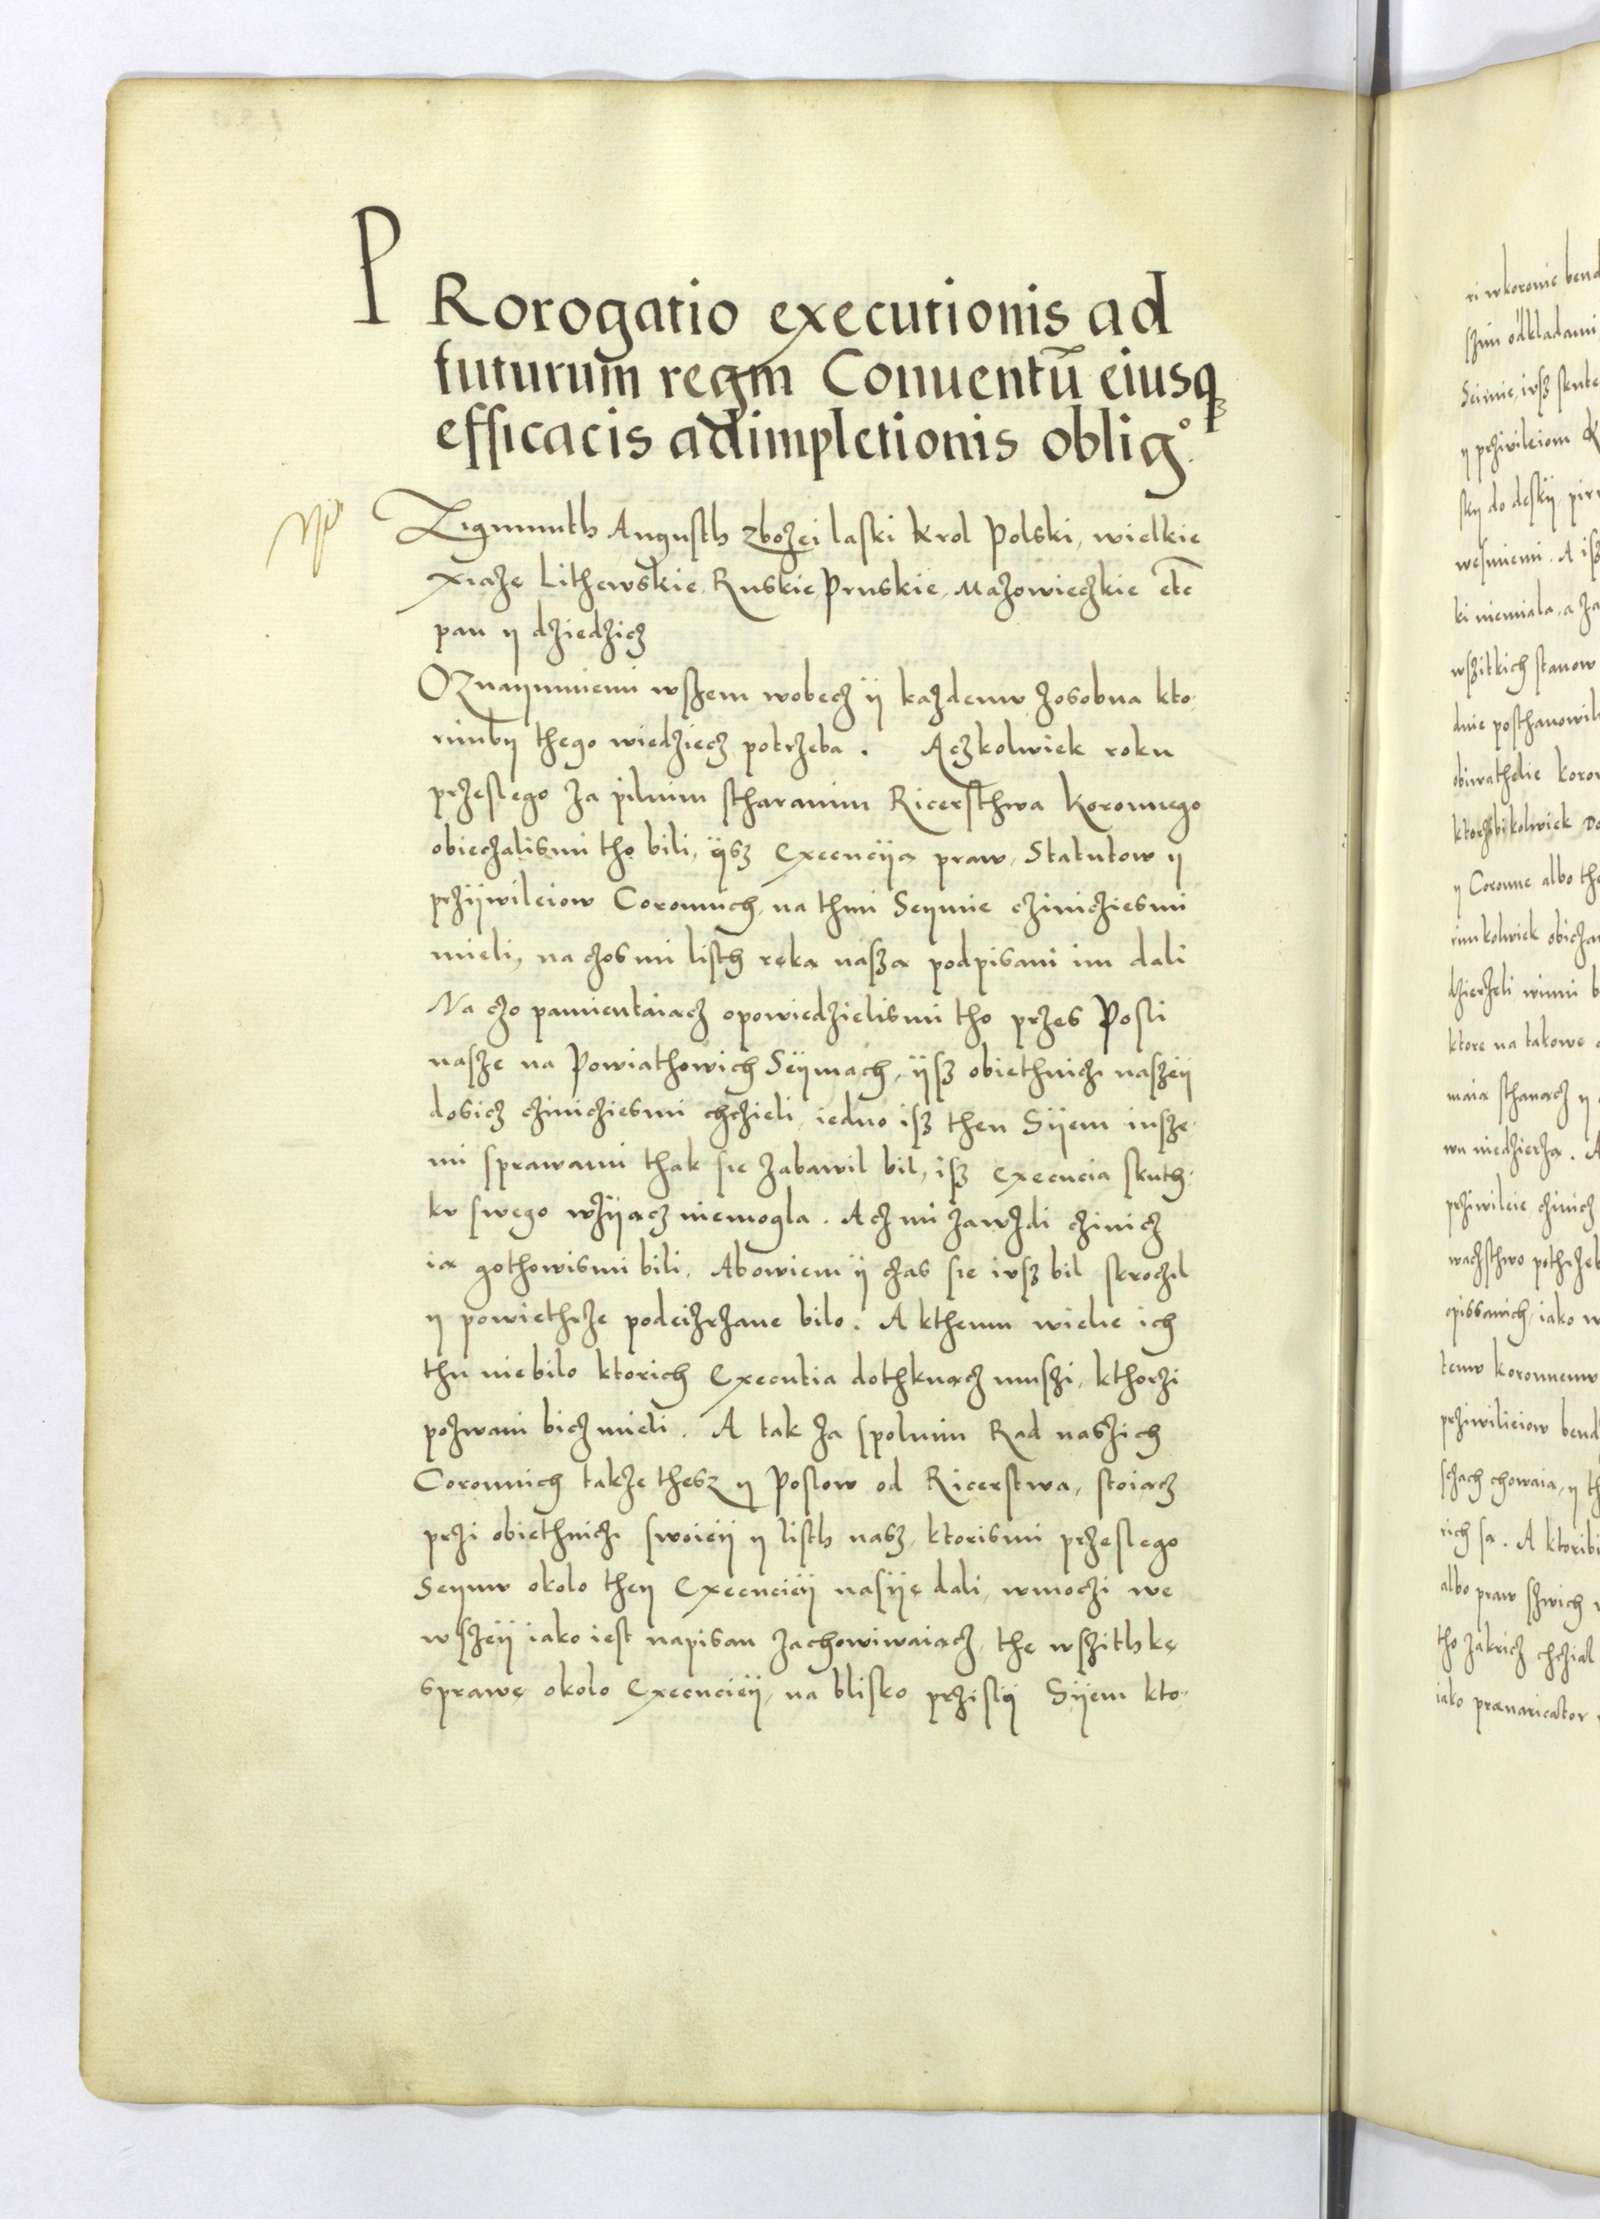 PRorogatio executionis ad
futurum regm Conuentũ eiusqȝ
efficacis adimpletionis oblig°.
Zigmunth Augusth zbożei laski Krol Polski, wielkie
Xiażę Lithewskie, Ruskie, Pruskie, Mazowieczkie etc̄
pan y dziedzicz
OZnaymuiemi wszem wobecz ÿ każdemw zosobna kto-
rimby thego wiedziecz potrzeba. Aczkolwiek roku
przeslego za pilnim stharanim Ricersthwa Koronnego
obieczalismi tho bili, ÿsz Execucÿą praw, Statutow y
przÿwileiow Coronnich, na thmi Seymie cziniczieśmi
mieli, na czosmi listh ręką naszą podpisani im dali
Na czo pamientaiącz opowiedzielismi tho przes Posli
nasze na Powiathowich Sëymach, ÿsz obiethnici naszëÿ
dosicz cziniczieśmi chczieli, iedno isz then Sÿem insze-
mi sprawami thak się zabawil bil, isz Execucia skuth-
kv swego wżÿącz niemogla. Acz mi zawżdi czinicz
ią gothowismi bili, Abowiem ÿ czas się ivsz bil skroczil
y powiethrze podeizrzane bilo. A kthemu wielie ich
thu niebilo ktorich Executia dothknącz muszi, kthorzi
pozwani bicz mieli. A tak za spolnim Rad naszich
Coronnich także thesz y Poslow od Ricerstwa, stoiącz
przi obiethnici swoiëÿ y listh nasz, ktorismi przeslego
Seymw okolo they Execuciëÿ nasÿę dali, wmoczi we
wszëÿ iako iest napisan zachowiwaiącz, thę wszithkę
sprawę okolo Execuciëÿ, na blisko przislÿ Sÿem kto-
ri wkoronie bend
szim odkladami
Seimie, ivsz skute
y prziwileiom K
wesmiemi. A isz
ki niemiala, a za
wszitkich stanow
dnie posthanowil
obiwathelie koro
ktorzsbikolwiek
y Coronne albo the
rimkolwiek obicza
dzierżeli winni b
ktore na takowe
maią sthanącz y
wn niedzierżą. A
prziwileie czinicz
wączsthwo pothrzeb
opissanich, iako w
temw koronnemw
prziwilieiow bend
sczach chowaią, y th
rich są. A ktoribi
albo praw szwich
tho zakricz chcział
iako præuaricator